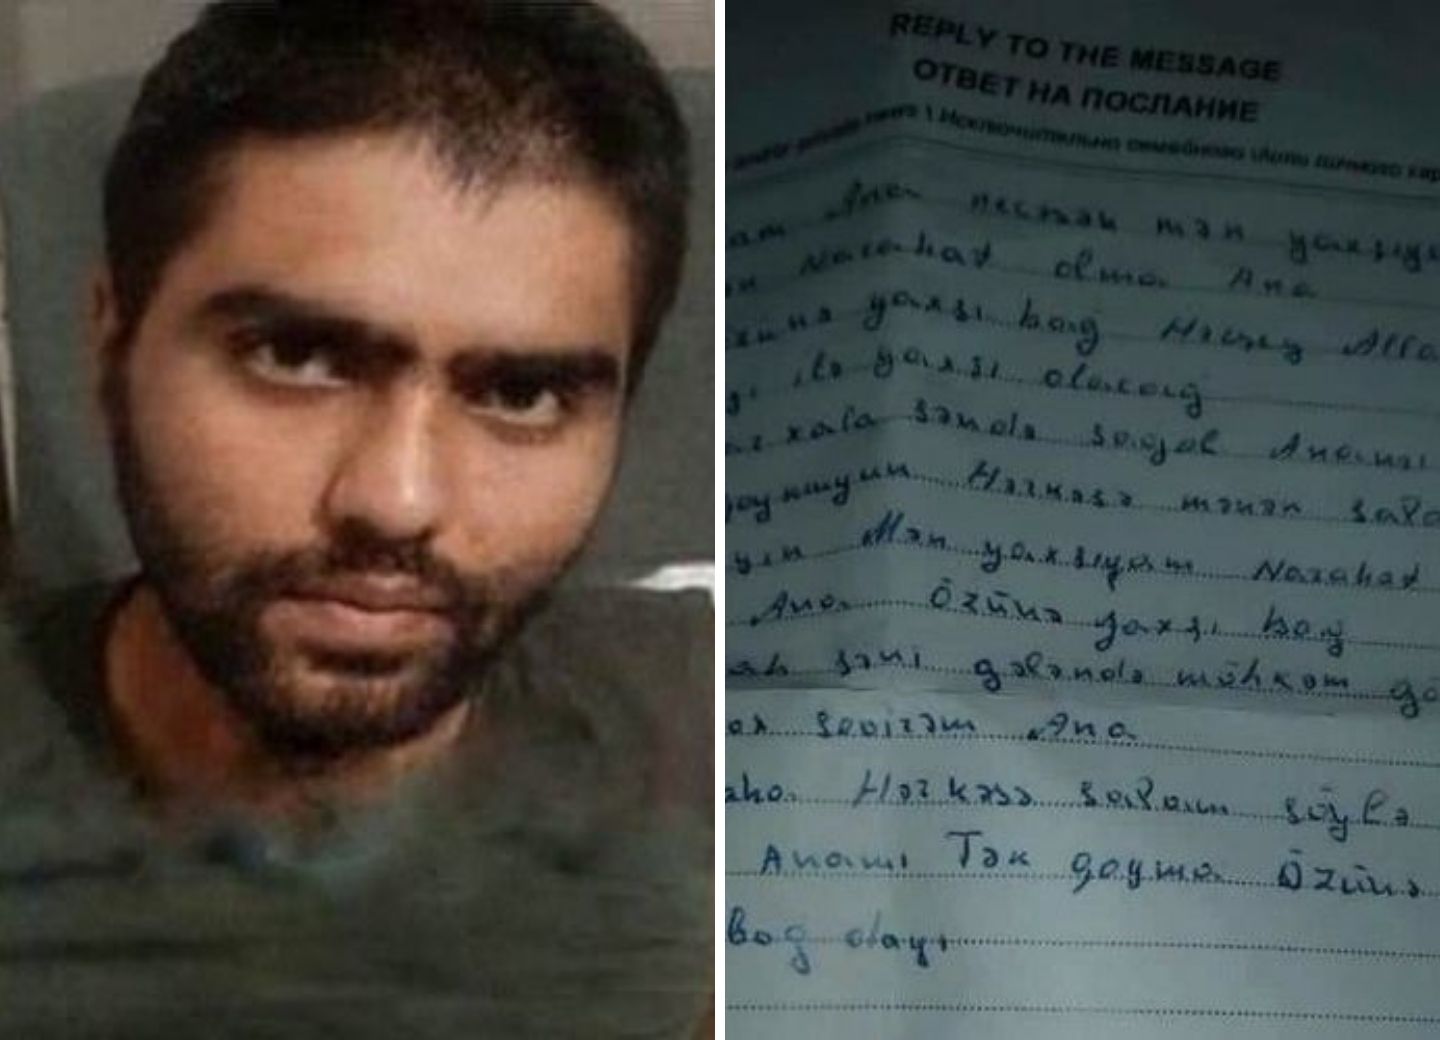 REPLY TO THE MESSAGE
ОТВЕТ НА ПОСЛАНИЕ
news \ Исключительно семейного и\или личного хар
Ana necəsən mən yaxşıy
Narahat olma Ana
yaxşı bağ Hərşey Alla
ilə yaxşı olacağ
xala səndə sağol Anamı
Hərkəsə mənən salo
yin Mən yaxşıyam Narahat
Ana Özünə yaxşı bağ
səni gələndə möhkəm
sevirəm Ana
Hərkəsə salam söylə
Anamı Tək qoyma Özünə
bağ